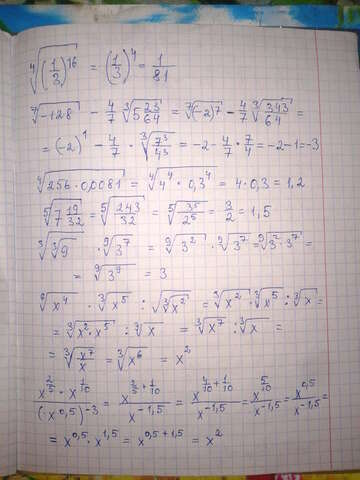 ⁴√((1/3)¹⁶) = (1/3)⁴ = 1/81
⁷√(-128) - 4/7 ³√(5 23/64) = ⁷√((-2)⁷) - 4/7 ³√(343/64) =
= (-2)¹ - 4/7 · ³√(7³/4³) = -2 - 4/7 · 7/4 = -2 - 1 = -3
⁴√(256 · 0,0081) = ⁴√(4⁴ · 0,3⁴) = 4 · 0,3 = 1,2
⁵√(7 19/32) = ⁵√(243/32) = ⁵√(3⁵/2⁵) = 3/2 = 1,5
³√(³√9) · ⁹√(3⁷) = ⁹√(3²) · ⁹√(3⁷) = ⁹√(3² · 3⁷) =
= ⁹√(3⁹) = 3
√(x⁴) · ³√(x⁵) : √(³√(x²)) = ³√(x²) · ³√(x⁵) : ³√x =
= ³√(x² · x⁵) : ³√x = ³√(x⁷) : ³√x =
= ³√(x⁷/x) = ³√(x⁶) = x²
x^(2/5) · x^(1/10) / (x^(0,5))^(-3) = x^(2/5 + 1/10) / x^(-1,5) = x^(4/10 + 1/10) / x^(-1,5) = x^(5/10) / x^(-1,5) = x^(0,5) / x^(-1,5) =
= x^(0,5) · x^(1,5) = x^(0,5 + 1,5) = x²